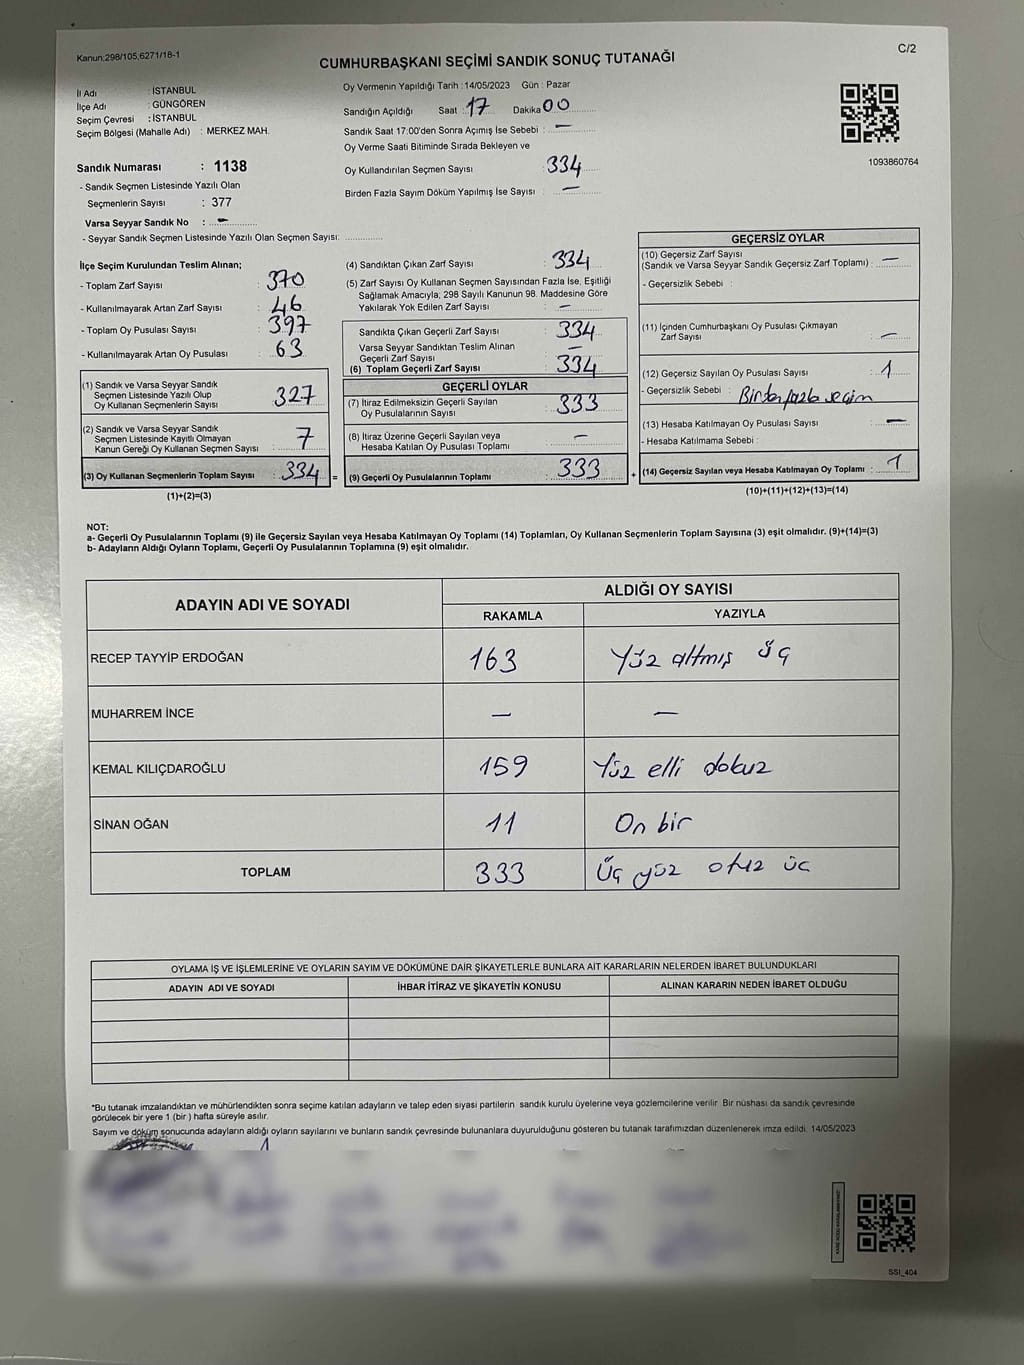 Kanun:298/105;6271/18-1
C/2
CUMHURBAŞKANI SEÇİMİ SANDIK SONUÇ TUTANAĞI
İl Adı : İSTANBUL
İlçe Adı : GÜNGÖREN
Seçim Çevresi : İSTANBUL
Seçim Bölgesi (Mahalle Adı) : MERKEZ MAH.
Sandık Numarası : 1138
- Sandık Seçmen Listesinde Yazılı Olan
Seçmenlerin Sayısı : 377
Varsa Seyyar Sandık No : –
- Seyyar Sandık Seçmen Listesinde Yazılı Olan Seçmen Sayısı: ............
Oy Vermenin Yapıldığı Tarih : 14/05/2023 Gün : Pazar
Sandığın Açıldığı Saat : 17 Dakika 00
Sandık Saat 17:00'den Sonra Açımış İse Sebebi : –
Oy Verme Saati Bitiminde Sırada Bekleyen ve
Oy Kullandırılan Seçmen Sayısı : 334
Birden Fazla Sayım Döküm Yapılmış İse Sayısı : –
1093860764
İlçe Seçim Kurulundan Teslim Alınan;
- Toplam Zarf Sayısı : 370
- Kullanılmayarak Artan Zarf Sayısı : 46
- Toplam Oy Pusulası Sayısı : 397
- Kullanılmayarak Artan Oy Pusulası : 63
(1) Sandık ve Varsa Seyyar Sandık
Seçmen Listesinde Yazılı Olup
Oy Kullanan Seçmenlerin Sayısı : 327
(2) Sandık ve Varsa Seyyar Sandık
Seçmen Listesinde Kayıtlı Olmayan
Kanun Gereği Oy Kullanan Seçmen Sayısı : 7
(3) Oy Kullanan Seçmenlerin Toplam Sayısı : 334 =
(1)+(2)=(3)
(4) Sandıktan Çıkan Zarf Sayısı : 334
(5) Zarf Sayısı Oy Kullanan Seçmen Sayısından Fazla İse, Eşitliği
Sağlamak Amacıyla; 298 Sayılı Kanunun 98. Maddesine Göre
Yakılarak Yok Edilen Zarf Sayısı : –
Sandıkta Çıkan Geçerli Zarf Sayısı : 334
Varsa Seyyar Sandıktan Teslim Alınan
Geçerli Zarf Sayısı : –
(6) Toplam Geçerli Zarf Sayısı : 334
GEÇERLİ OYLAR
(7) İtiraz Edilmeksizin Geçerli Sayılan
Oy Pusulalarının Sayısı : 333
(8) İtiraz Üzerine Geçerli Sayılan veya
Hesaba Katılan Oy Pusulaları Toplamı : –
(9) Geçerli Oy Pusulalarının Toplamı : 333 +
GEÇERSİZ OYLAR
(10) Geçersiz Zarf Sayısı
(Sandık ve Varsa Seyyar Sandık Geçersiz Zarf Toplamı) : –
- Geçersizlik Sebebi :
(11) İçinden Cumhurbaşkanı Oy Pusulası Çıkmayan
Zarf Sayısı : –
(12) Geçersiz Sayılan Oy Pusulası Sayısı : 1
- Geçersizlik Sebebi : Birden fazla seçim
(13) Hesaba Katılmayan Oy Pusulası Sayısı : –
- Hesaba Katılmama Sebebi :
(14) Geçersiz Sayılan veya Hesaba Katılmayan Oy Toplamı : 1
(10)+(11)+(12)+(13)=(14)
NOT:
a- Geçerli Oy Pusulalarının Toplamı (9) ile Geçersiz Sayılan veya Hesaba Katılmayan Oy Toplamı (14) Toplamları, Oy Kullanan Seçmenlerin Toplam Sayısına (3) eşit olmalıdır. (9)+(14)=(3)
b- Adayların Aldığı Oyların Toplamı, Geçerli Oy Pusulalarının Toplamına (9) eşit olmalıdır.
ADAYIN ADI VE SOYADI
ALDIĞI OY SAYISI
RAKAMLA YAZIYLA
RECEP TAYYİP ERDOĞAN 163 Yüz altmış üç
MUHARREM İNCE – –
KEMAL KILIÇDAROĞLU 159 Yüz elli dokuz
SİNAN OĞAN 11 On bir
TOPLAM 333 Üç yüz otuz üç
OYLAMA İŞ VE İŞLEMLERİNE VE OYLARIN SAYIM VE DÖKÜMÜNE DAİR ŞİKAYETLERLE BUNLARA AİT KARARLARIN NELERDEN İBARET BULUNDUKLARI
ADAYIN ADI VE SOYADI İHBAR İTİRAZ VE ŞİKAYETİN KONUSU ALINAN KARARIN NEDEN İBARET OLDUĞU
*Bu tutanak imzalandıktan ve mühürlendikten sonra seçime katılan adayların ve talep eden siyasi partilerin sandık kurulu üyelerine veya gözlemcilerine verilir. Bir nüshası da sandık çevresinde
görülecek bir yere 1 (bir ) hafta süreyle asılır.
Sayım ve döküm sonucunda adayların aldığı oyların sayılarını ve bunların sandık çevresinde bulunanlara duyurulduğunu gösteren bu tutanak tarafımızdan düzenlenerek imza edildi. 14/05/2023
SSI_404